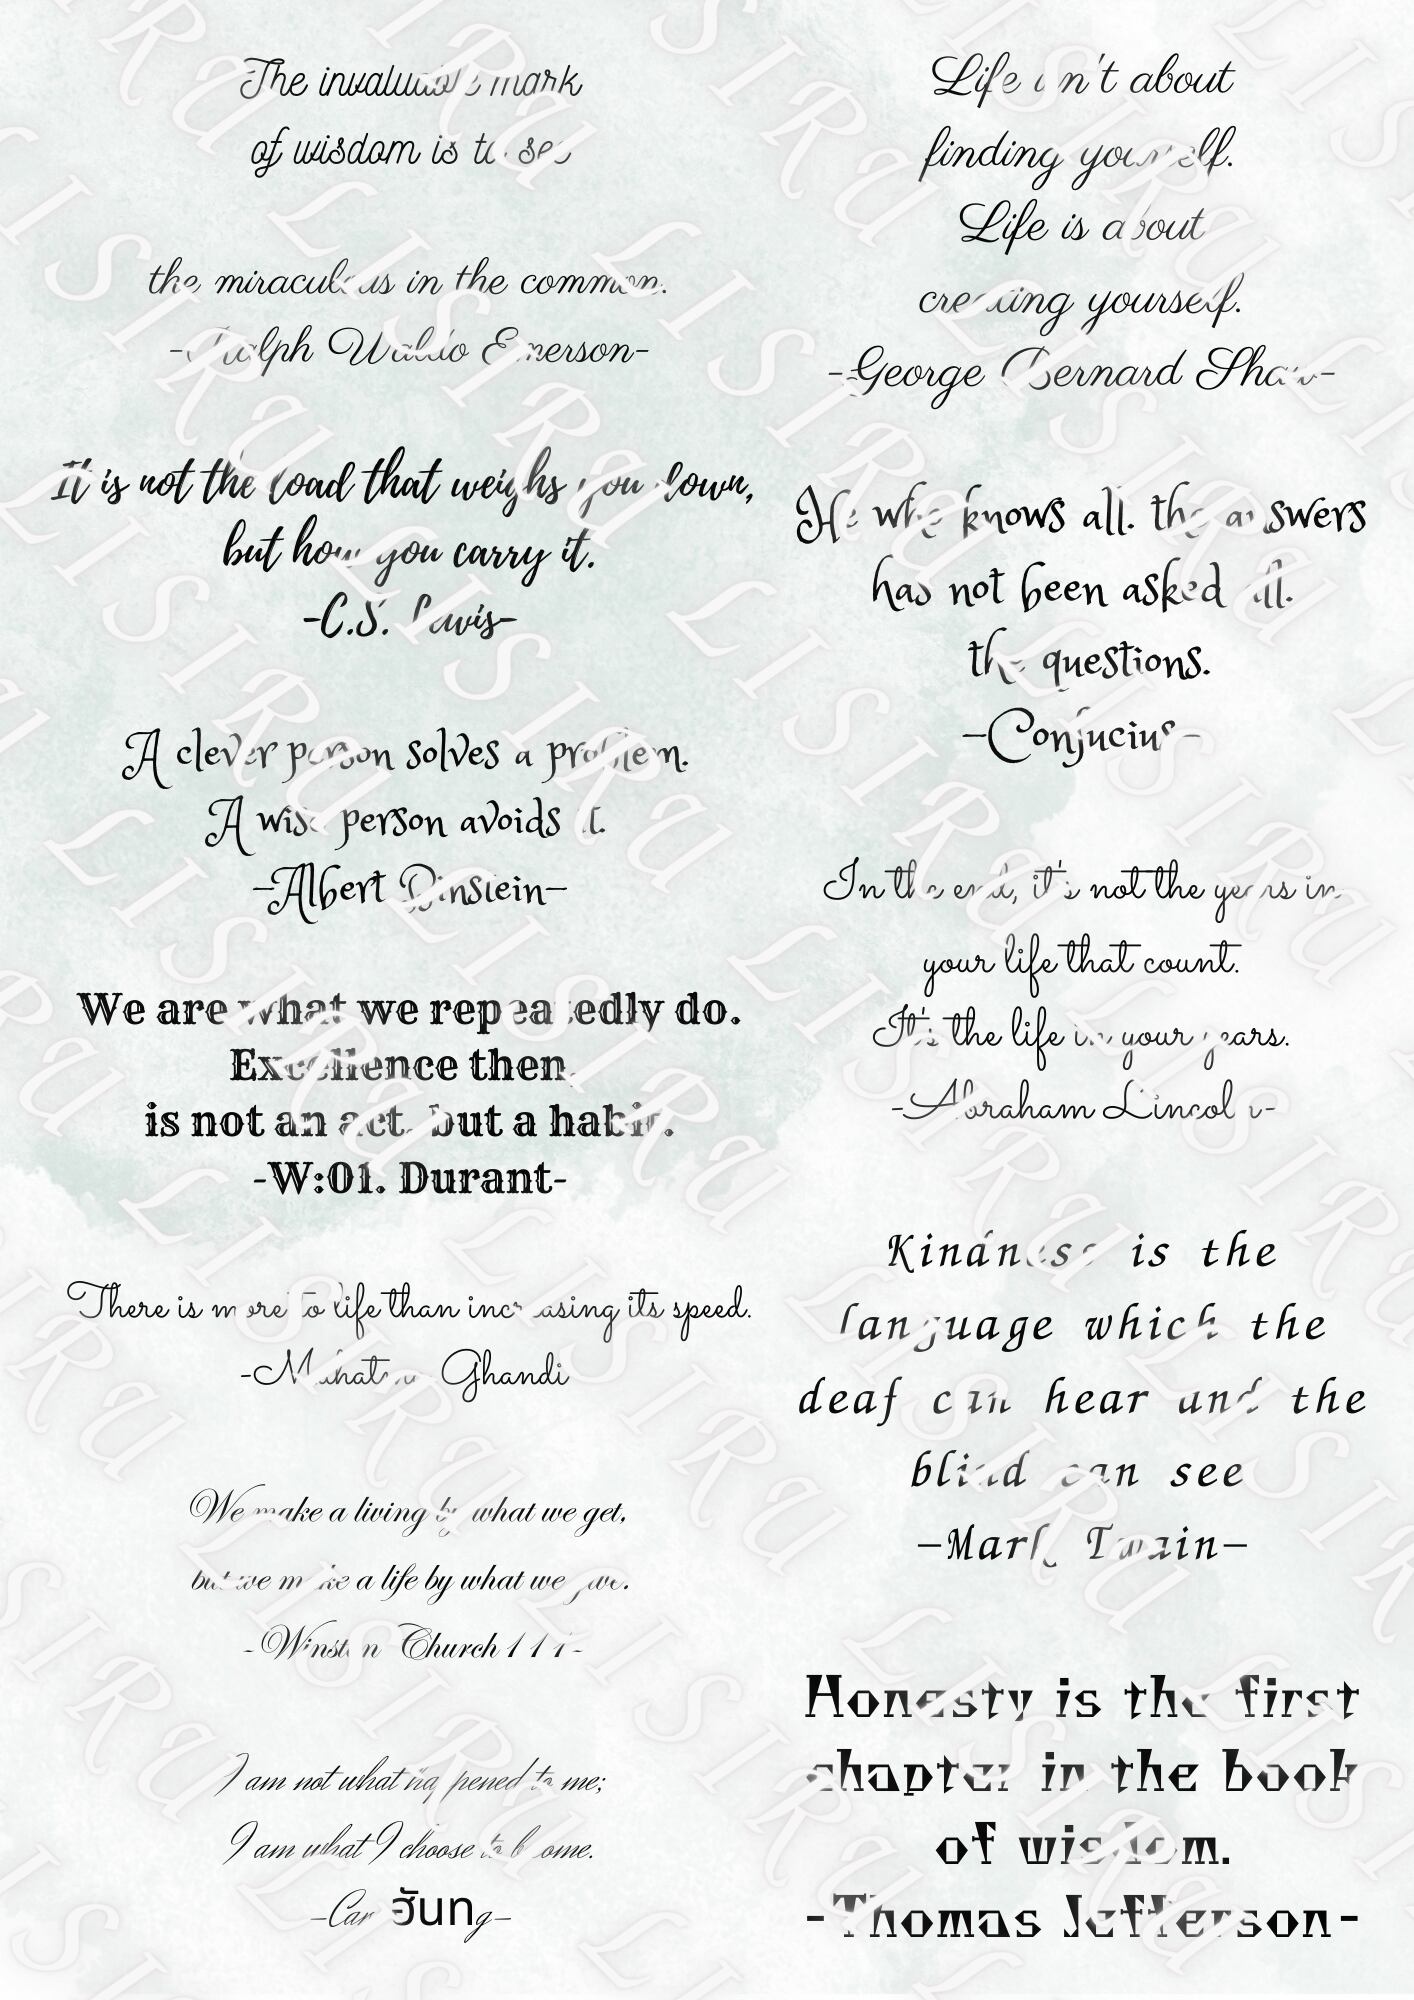 The invaluable mark
of wisdom is to see
the miraculous in the common.
-Ralph Waldo Emerson-
It is not the load that weighs you down,
but how you carry it.
-C.S. Lewis-
A clever person solves a problem.
A wise person avoids it.
-Albert Einstein-
We are what we repeatedly do.
Excellence then,
is not an act, but a habit.
-W:01. Durant-
There is more to life than increasing its speed.
-Mahatma Ghandi
We make a living by what we get,
but we make a life by what we give.
-Winston Church111-
I am not what happened to me;
I am what I choose to become.
-Car ฮันทg-
Life isn't about
finding yourself.
Life is about
creating yourself.
-George Bernard Shaw-
He who knows all the answers
has not been asked all
the questions.
-Confucius-
In the end, it's not the years in
your life that count.
It's the life in your years.
-Abraham Lincoln-
Kindness is the
language which the
deaf can hear and the
blind can see
-Mark Twain-
Honesty is the first
chapter in the book
of wisdom.
-Thomas Jefferson-
LISIRU